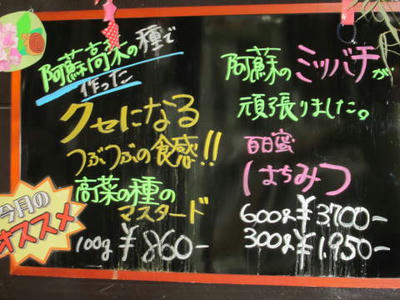 阿蘇高菜の種で
作った
クセになる
つぶつぶの食感!!
高菜の種の
マスタード
100g ¥860-
今月の
オススメ
阿蘇のミツバチが
頑張りました。
百日蜜
はちみつ
600g ¥3700-
300g ¥1,950-